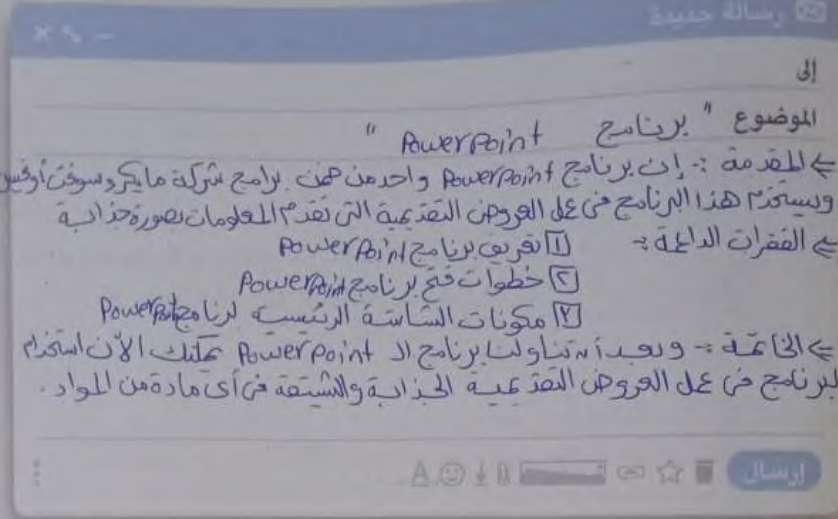 رسالة جديدة
إلى
الموضوع " برنامج PowerPoint "
المقدمة :- إن برنامج PowerPoint واحد من ضمن برامج شركة مايكروسوفت أوفيس
ويستخدم هذا البرنامج في عمل العروض التقديمية التي تقدم المعلومات بصورة جذابة
الفقرات الداعمة :- ١ تعريف برنامج PowerPoint
٢ خطوات فتح برنامج PowerPoint
٣ مكونات الشاشة الرئيسية لبرنامج PowerPoint
الخاتمة :- وبعد أن تناولنا برنامج الـ PowerPoint يمكنك الآن استخدام
البرنامج في عمل العروض التقديمية الجذابة والشيقة في أي مادة من المواد .
إرسال A